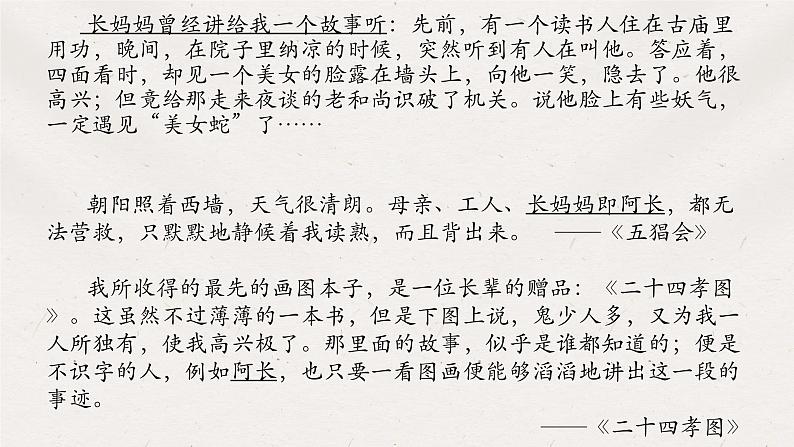 长妈妈曾经讲给我一个故事听：先前，有一个读书人住在古庙里
用功，晚间，在院子里纳凉的时候，突然听到有人在叫他。答应着，
四面看时，却见一个美女的脸露在墙头上，向他一笑，隐去了。他很
高兴；但竟给那走来夜谈的老和尚识破了机关。说他脸上有些妖气，
一定遇见“美女蛇”了……
朝阳照着西墙，天气很清朗。母亲、工人、长妈妈即阿长，都无
法营救，只默默地静候着我读熟，而且背出来。 ——《五猖会》
我所收得的最先的画图本子，是一位长辈的赠品：《二十四孝图
》。这虽然不过薄薄的一本书，但是下图上说，鬼少人多，又为我一
人所独有，使我高兴极了。那里面的故事，似乎是谁都知道的；便是
不识字的人，例如阿长，也只要一看图画便能够滔滔地讲出这一段的
事迹。
——《二十四孝图》